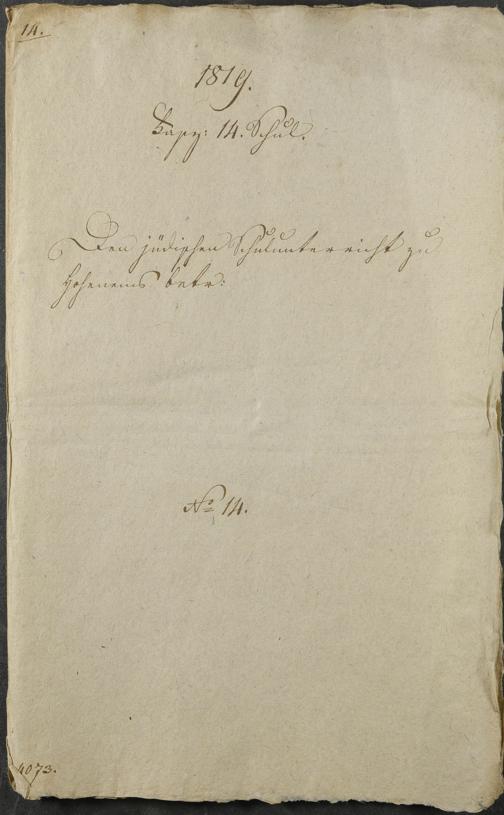 14.
1819.
14. Schul.
Den jüdischen Schulunterricht zu
Hohenems betr:
No 14.
4073.